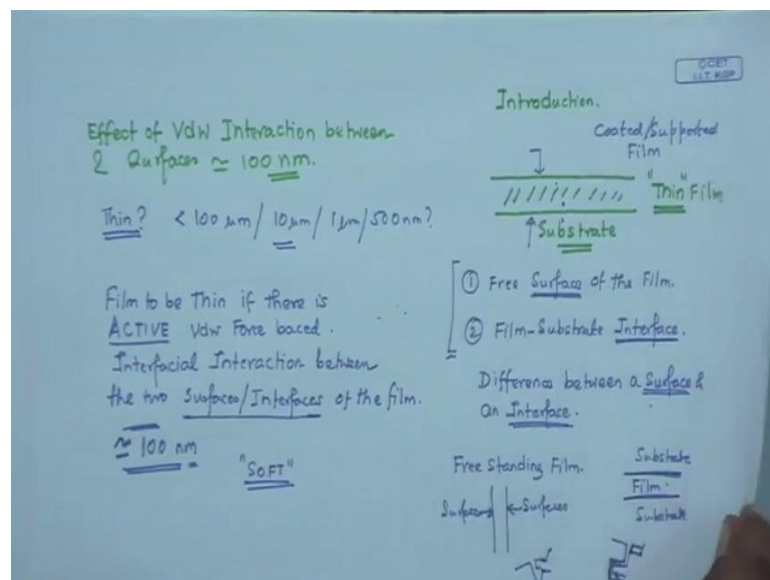 CCET
I.I.T. KGP
Effect of VdW Interaction between
2 Surfaces ≃ 100 nm.
Thin? < 100 µm / 10 µm / 1 µm / 500 nm?
Film to be Thin if there is
ACTIVE VdW Force based.
Interfacial Interaction between
the two Surfaces/Interfaces of the film.
≃ 100 nm
"SOFT"
Introduction.
Coated/Supported
Film
"Thin" Film
Substrate
① Free Surface of the Film.
② Film-Substrate Interface.
Difference between a Surface &
an Interface.
Free Standing Film.
Surfaces Surfaces
Substrate
Film.
Substrate